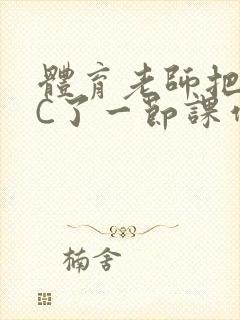 體育老師把
C了一節課
楠舍